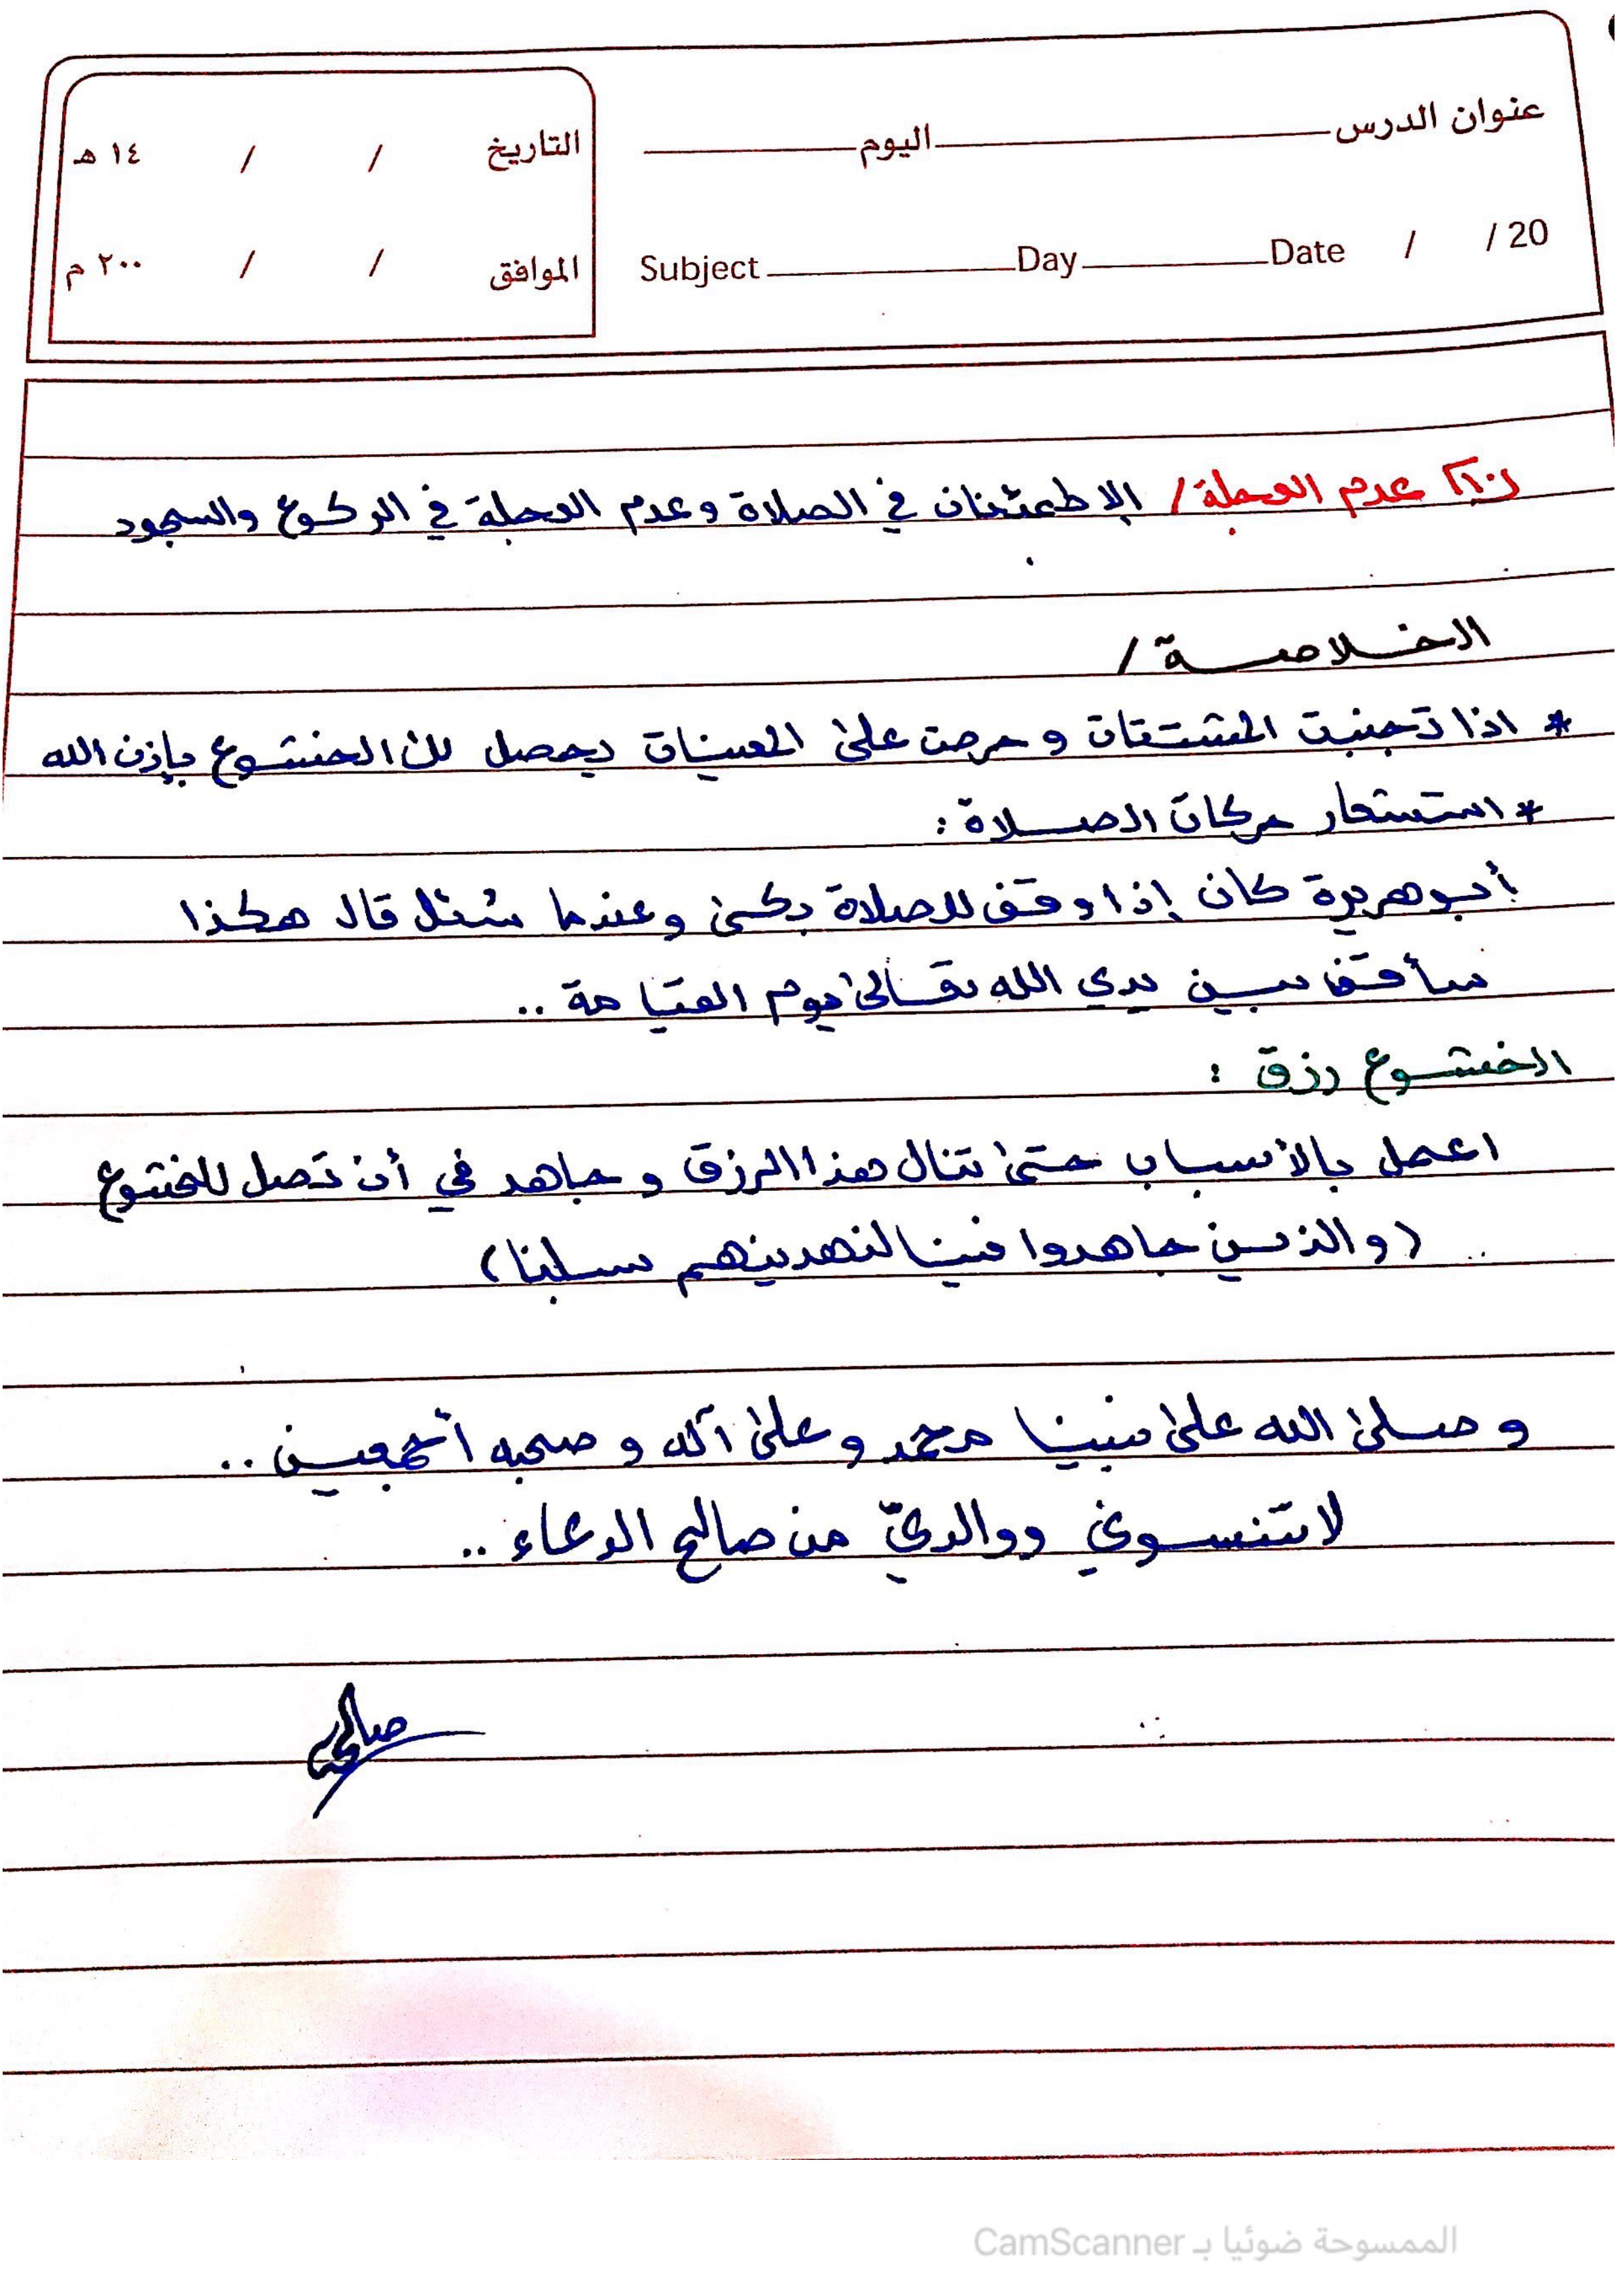 عنوان الدرس اليوم
التاريخ / / ١٤ هـ
Subject Day Date / / 20
الموافق / / ٢٠٠ م
عدم العجلة / الإطمئنان في الصلاة وعدم العجلة في الركوع والسجود
الخلاصة /
* اذا تجنبت المشتتات و حرصت على المعينات يحصل لك الخشوع بإذن الله
* استشعار حركات الصلاة :
أبو هريرة كان إذا وقف للصلاة بكى وعندما سُئل قال هكذا
سأقف بين يدي الله تعالى يوم القيامة ..
الخشوع رزق :
اعمل بالأسباب حتى تنال هذا الرزق و جاهد في أن تصل للخشوع
(والذين جاهدوا فينا لنهدينهم سبلنا)
و صلى الله على نبينا محمد و على آله و صحبه أجمعين ..
لا تنسوني ووالديّ من صالح الدعاء ..
صالح
الممسوحة ضوئيا بـ CamScanner